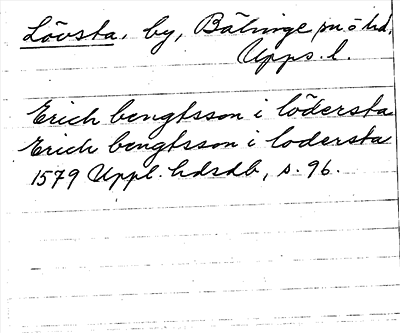 Lövsta, by, Bälinge sn o hd,
Upps. l.
Erich bengtsson i lödersta
Erich bengtsson i lodersta
1579 Uppl. hdrdb, s. 96.